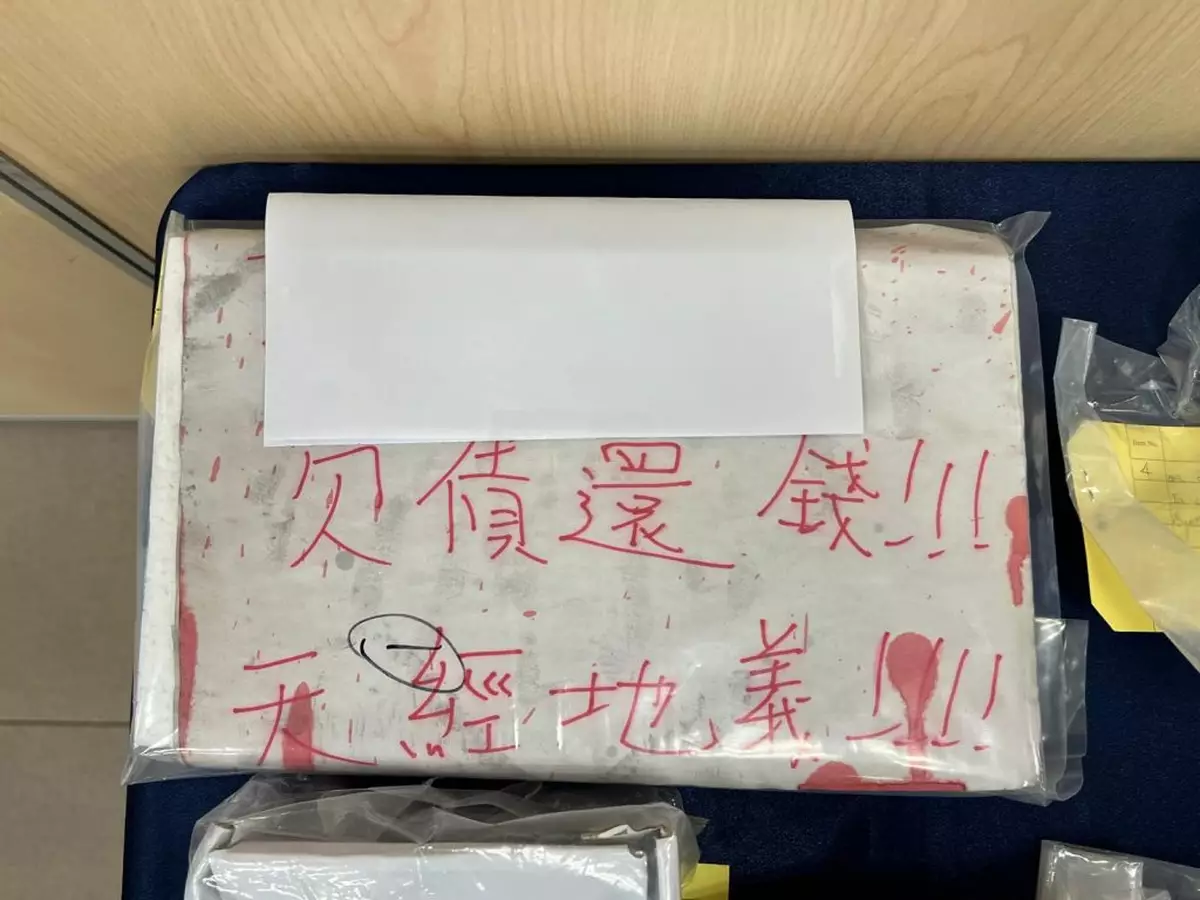 欠債還錢!!!
天經地義!!!!
Item No.
4